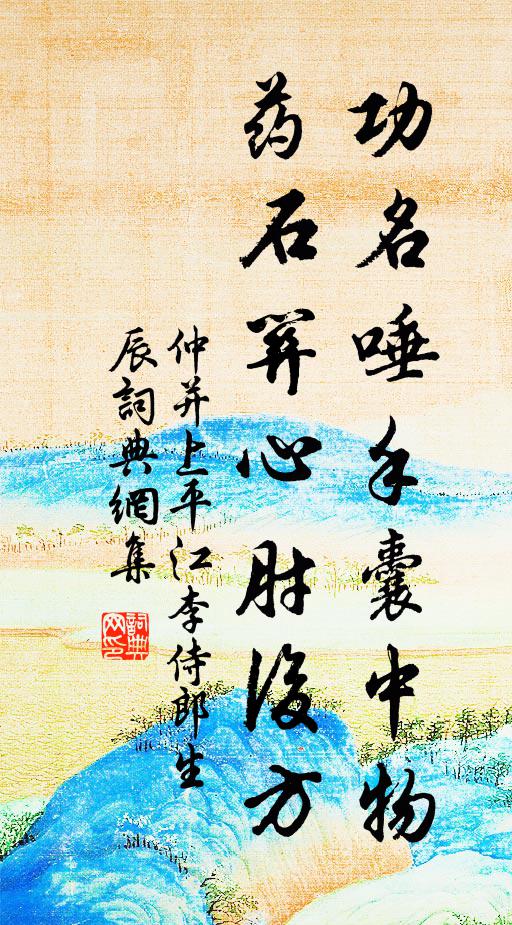 功名唾手囊中物
药石开心肘後方
仲并上平江李侍郎生
辰詞典網集
詞典
网印